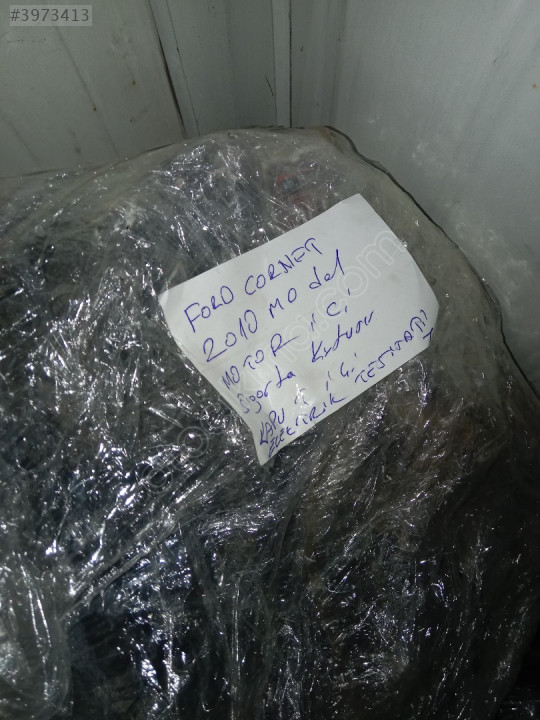 #3973413
FORD CORNET
2010 MOdel
MOTOR İÇİ
Sigorta Kutusu
KAPU İÇİ
ELEKTİRİK TESİTATI